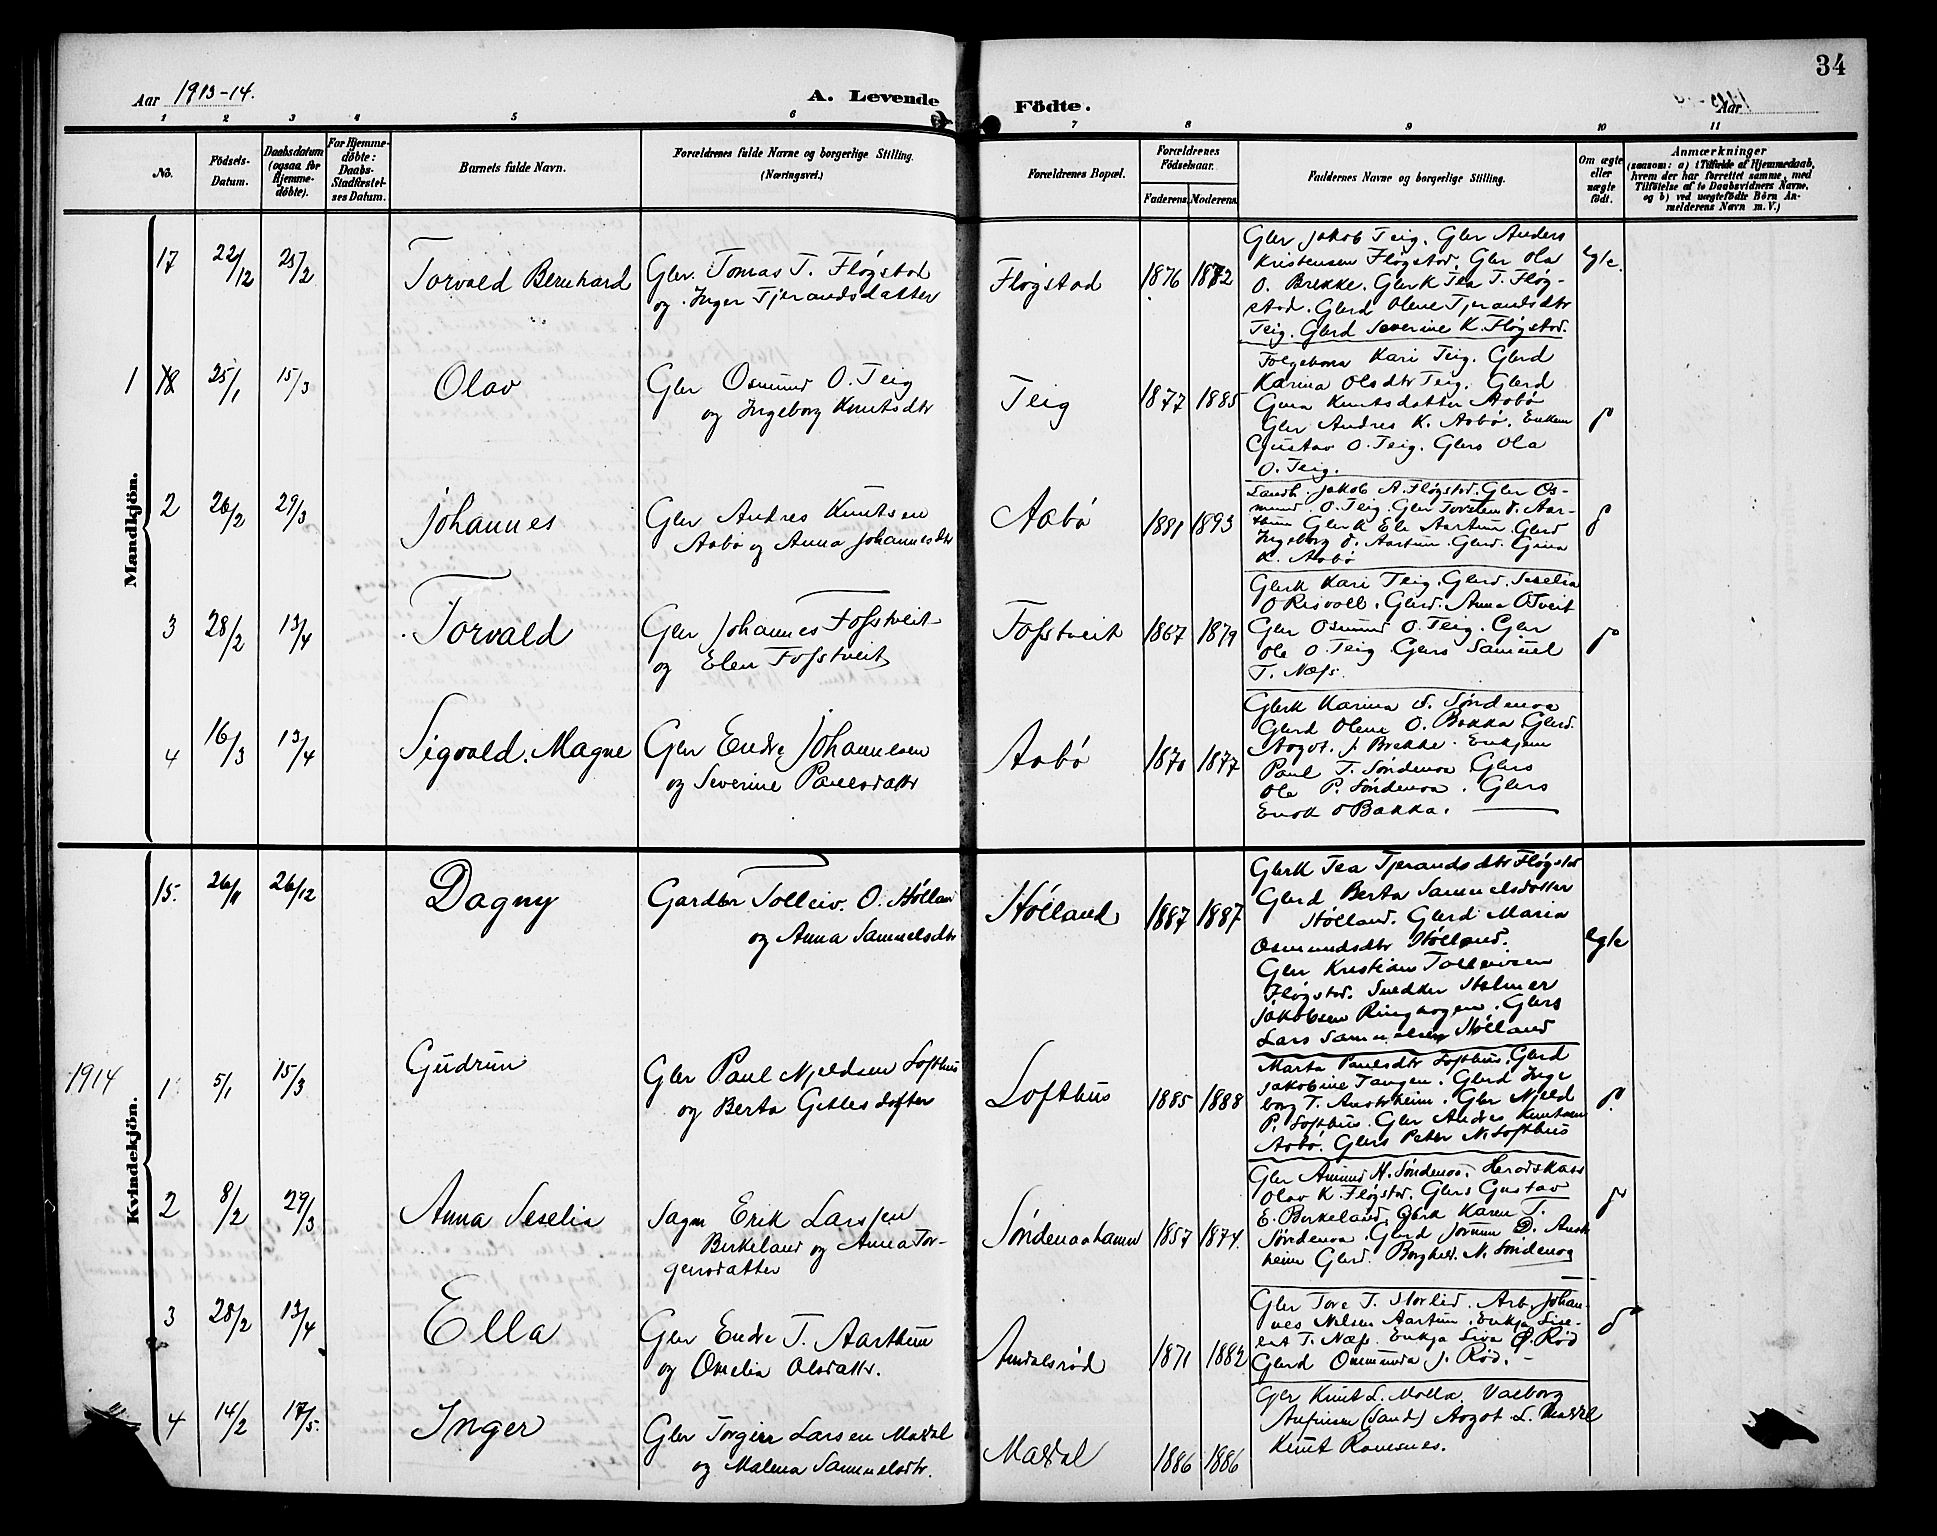 34
Aar 1913-14. A. Levende Födte. Aar
1 2 3 4 5 6 7 8 9 10 11
No. Födsels-Datum. Daabsdatum (ogsaa for Hjemmedöbte). For Hjemmedöbte: Daabs-Stadfæstelses Datum. Barnets fulde Navn. Forældrenes fulde Navne og borgerlige Stilling. (Næringsvei.) Forældrenes Bopæl. Forældrenes Födselsaar. Faderens. Moderens. Faddernes Navne og borgerlige Stilling. Om ægte eller uægte födt. Anmærkninger (saasom: a) i Tilfælde af Hjemmedaab, hvem der har forrettet samme, med Tilföielse af to Daabsvidners Navne, og b) ved uægtefödte Börn Anmelderens Navn m. V.)
Mandkjön.
17 22/12 25/2 Torvald Bernhard Gbr. Tomas T. Fløgstad
og Inger Tjerandsdatter Fløgstad 1876 1872
Gbr Jakob Teig. Gbr Anders
Kristensen Fløgstad. Gbr Ola
O. Brekke. Gbrk Tea T. Fløg-
stad. Gbrd Olene Tjerandsdtr
Teig. Gbrd Severine K. Fløgstad.
1 18 25/1 15/3 Olav Gbr Osmund O. Teig
og Ingeborg Knutsdtr Teig 1877 1885
Kari Teig. Gbrd
Karina Olsdtr Teig. Gbrd
Gina Knutsdatter Aabø
Gbr Andres K. Aabø.
Gustav O. Teig. Gbrs Ola
O. Teig.
2 26/2 29/3 Johannes Gbr Andres Knutsen
Aabø og Anna Johannesdtr Aabø 1881 1893
Landh. Jakob A. Fløgstad. Gbr Os-
mund O. Teig. Gbr Torsten O. Aar-
thun Gbrk Eli Aartun. Gbrd
Ingeborg O. Aartun. Gbrd. Gina
K. Aabø
3 28/2 13/4 Torvald Gbr Johannes Fosstveit
og Elen Fosstveit Fosstveit 1867 1879
Gbrk Kari Teig. Gbrd. Seselia
O Risvoll. Gbrd. Anna O Tveit
Gbr Osmund O. Teig. Gbr
Ole O. Teig. Gbrs Samuel
T. Næss.
4 16/3 13/4 Sigvald. Magne Gbr Endre Johannesen
og Severine Paulsdattr Aabø 1870 1877
Gbrk Karina S. Søndenaa
Gbrd Olene O. Bakka Gbrd.
Aagot. J. Brekke.
Paul T. Søndenaa Gbrs
Ole P. Søndenaa. Gbrs
Enok O Bakka.
Kvindekjön.
15. 26/11 26/12 Dagny Gardbr Tolleiv. O. Hølland
og Anna Samuelsdtr Hølland 1887 1887
Gbrk Tea Tjerandsdtr Fløgstad
Gbrd Berta Samuelsdatter
Hølland. Gbrd Maria
Osmundsdtr Hølland.
Gbr Kristian Tolleivsen
Fløgstad. Snedker Halmer
Jakobsen Ringhagen. Gbrs
Lars Samuelsen Hølland
1914 1 5/1 15/3 Gudrun Gbr Paul Njeldsen Lofthus
og Berta Gitlesdatter Lofthus 1885 1888
Marta Paulsdtr Lofthus. Gbrd
Jakobine Tangen. Gbrd Inge
borg T. Gbr Njeld
P. Lofthus. Gbr Andres Knutsen
Aabø. Gbrs Peter N. Lofthus
2 8/2 29/3 Anna Seselia Sagm Erik Larssen
Birkeland og Anna Tor-
gersdatter Søndenaahamn 1857 1874.
Gbr Amund H. Søndenaa. Heredskass
Olav K. Fløgstad. Gbrs Gustav
E. Birkeland. Gbrk Karen T.
Søndenaa. Gbrd Jorunn
Gbrd. Borghild. N. Søndenaa
3 28/2 13/4 Ella Gbr Endre T. Aarthun
og Omelia Olsdattr. Amdalsrød 1871 1882
Gbr Tore T. Storlid. Arb. Johan-
nes Nilsen Aartun.
T. Næss. Enkja Siva Ø. Rød
Gbrd Osmunda J. Rød.
4 14/2 17/5. Inger Gbr Torgeir Larsen Masdal
og Malena Samuelsdtr. Masdal 1886 1886
Gbr Knut L. Molla. Valborg
Anfinsen (Sand) Aagot L. Masdal
Knut Ramsnes.